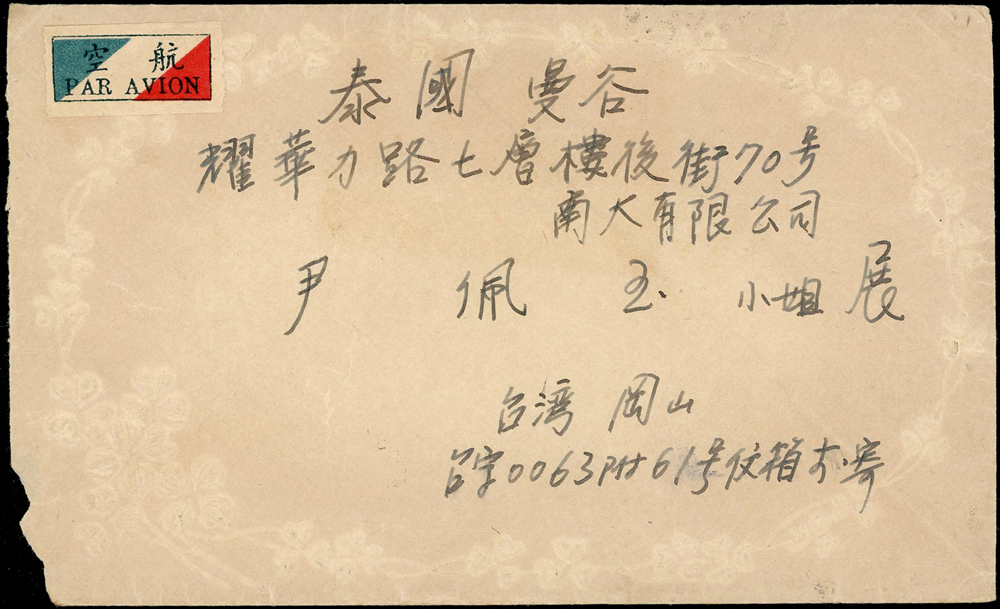 空 航
PAR AVION
泰國 曼谷
耀華力路七層樓後街70号
南大有限公司
尹 佩 玉 小姐 展
台湾 岡山
台字0063附61号信箱 寄